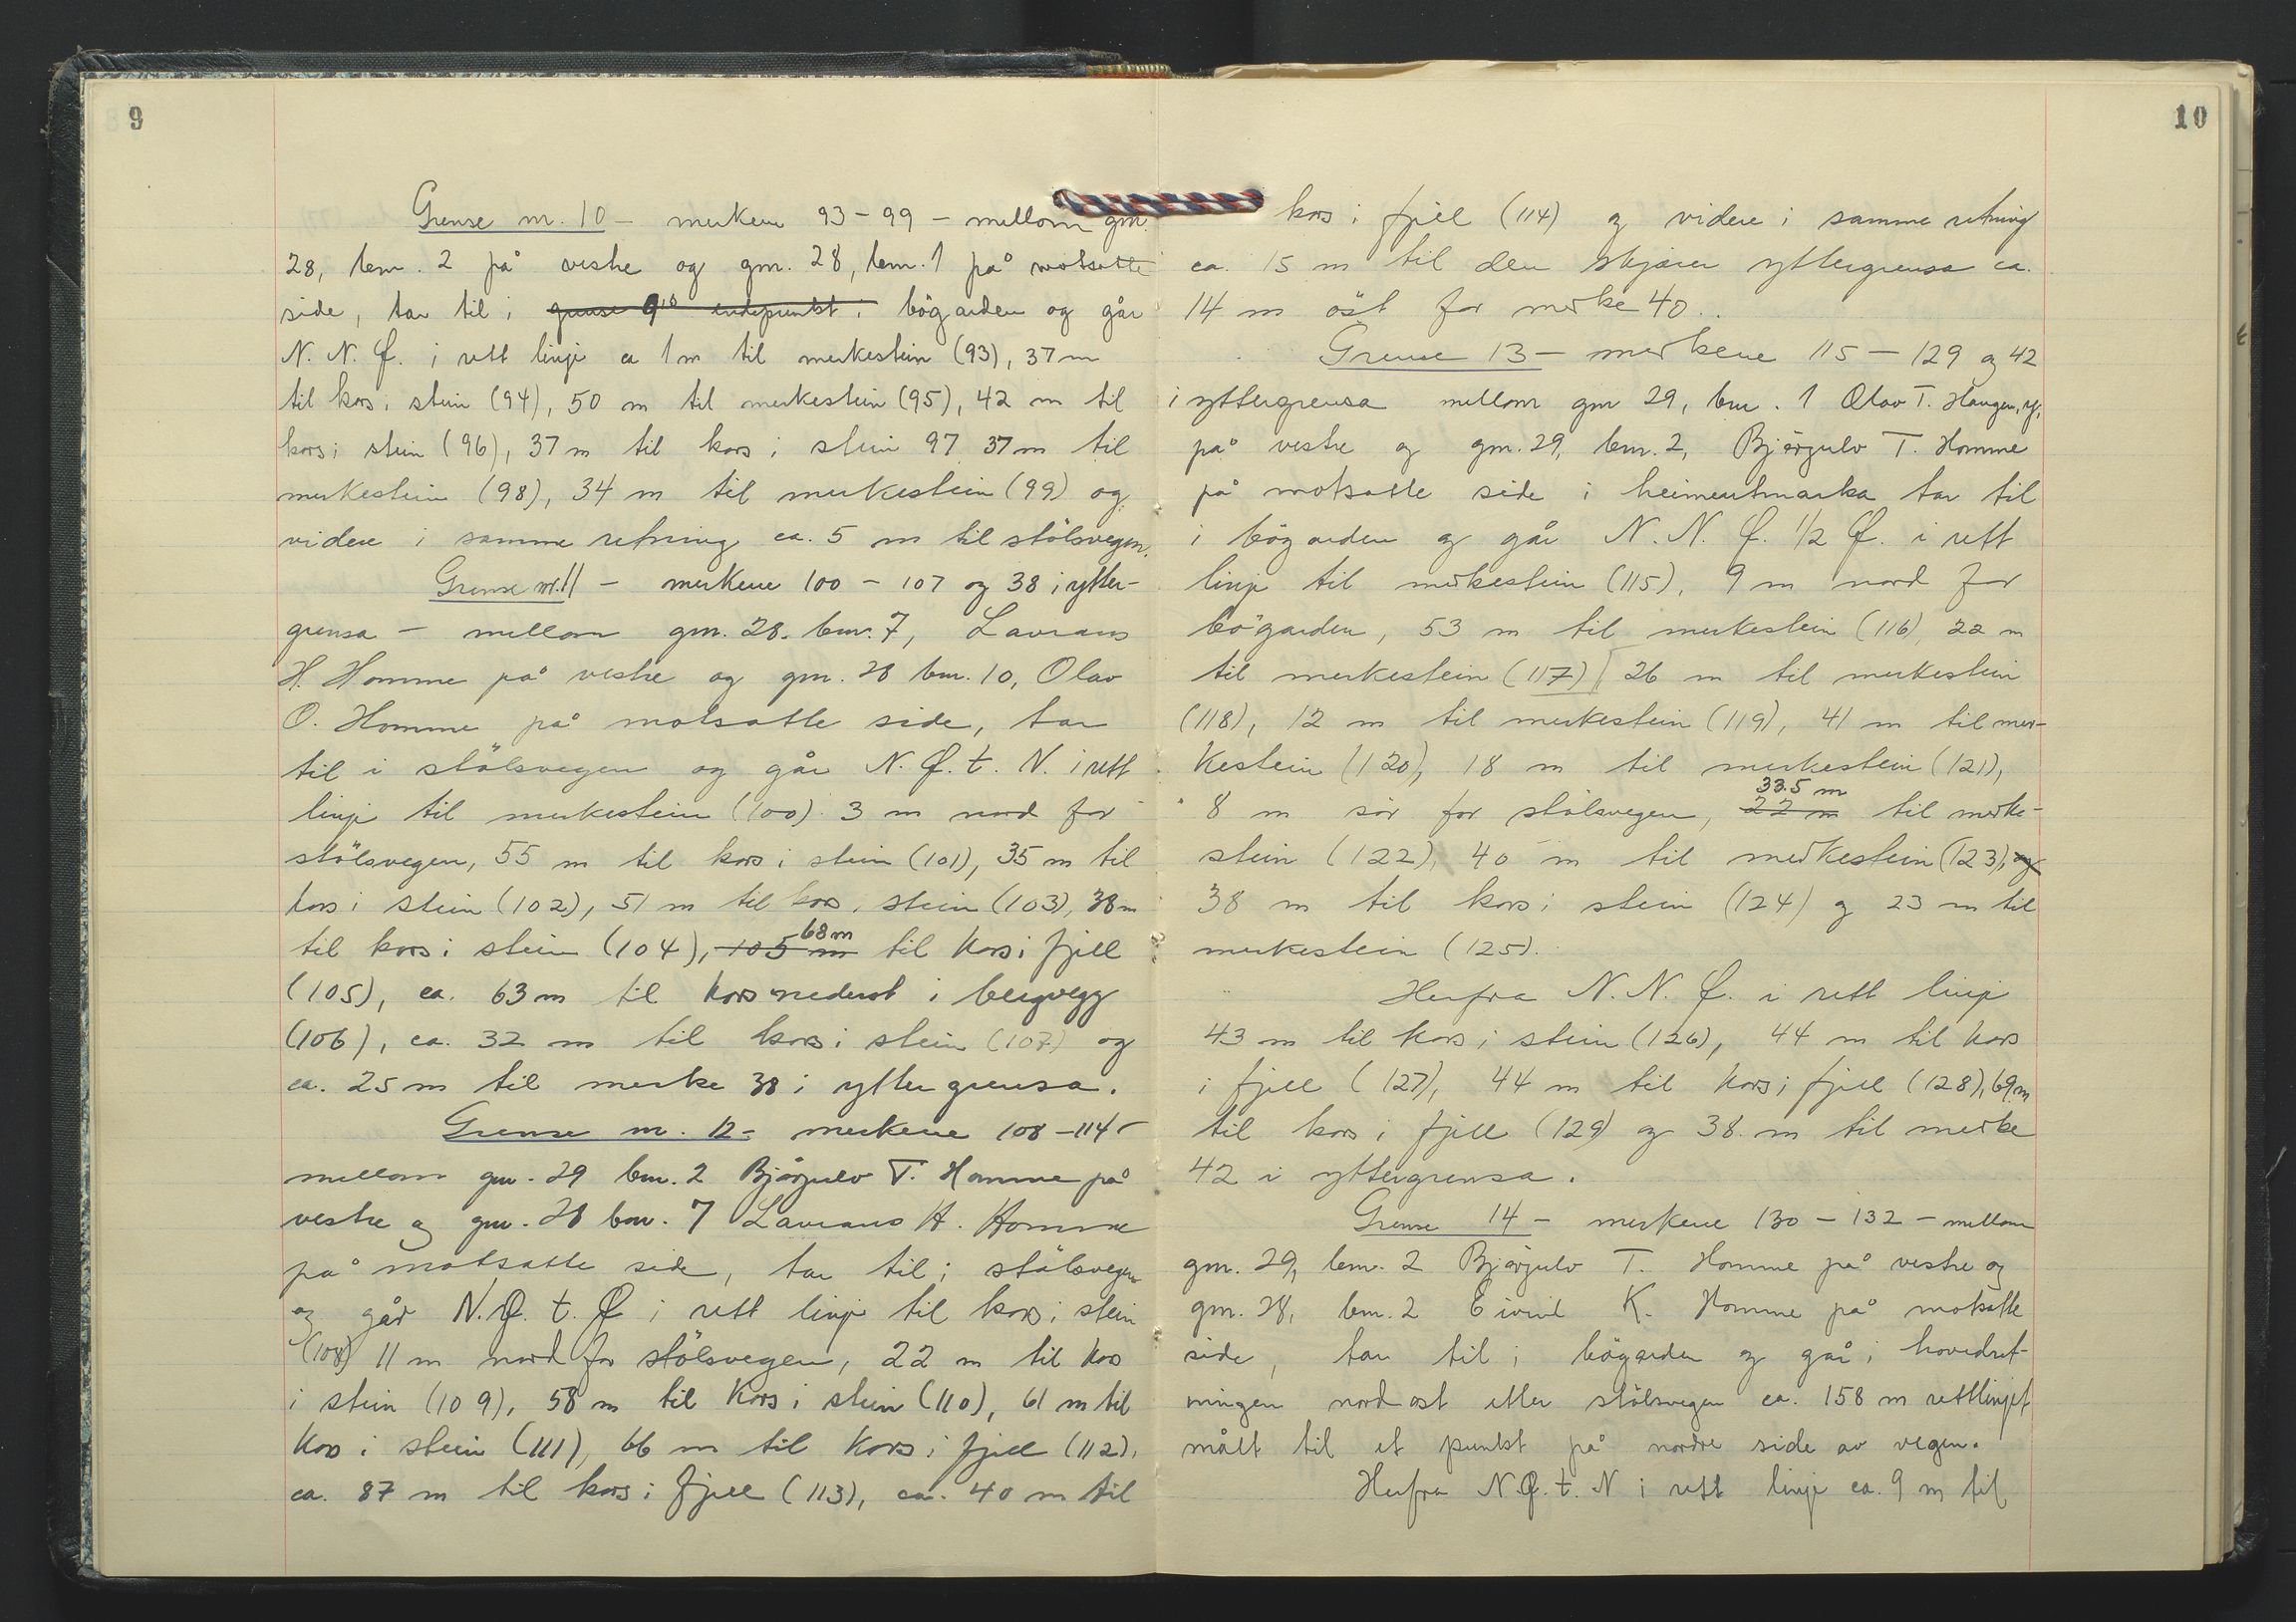 9
Grense nr. 10 - merkene 93-99 - mellom gnr.
28, bnr. 2 på vestre og gnr. 28, bnr. 1 på motsatte
side, tar til i grense 9 endepunkt i bögarden og går
N. N. Ø. i rett linje ca 1 m til merkestein (93), 37 m
til kors i stein (94), 50 m til merkestein (95), 42 m til
kors i stein (96), 37 m til kors i stein 97 37 m til
merkestein (98), 34 m til merkestein (99) og
videre i samme retning ca. 5 m til stölsvegen.
Grense nr. 11 - merkene 100 - 107 og 38 i ytter-
grensa - mellom gnr. 28. bnr. 7, Lavrans
H. Homme på vestre og gnr. 28 bnr. 10, Olav
O. Homme på motsatte side, tar
til i stölsvegen og går N. Ø. t. N. i rett
linje til merkestein (100) 3 m nord for
stölsvegen, 55 m til kors i stein (101), 35 m til
kors i stein (102), 51 m til kors i stein (103), 38 m
til kors i stein (104), 105 m 68 m til kors i fjell
(105), ca. 63 m til kors nederst i bergvegg
(106), ca. 32 m til kors i stein (107) og
ca. 25 m til merke 38 i yttergrensa.
Grense nr. 12 - merkene 108 - 114 -
mellom gnr. 29 bnr. 2 Björgulv T. Homme på
vestre og gnr. 28 bnr. 7 Lavrans H. Homme
på motsatte side, tar til i stölsvegen
og går N. Ø. t. Ø i rett linje til kors i stein
(108) 11 m nord for stölsvegen, 22 m til kors
i stein (109), 58 m til kors i stein (110), 61 m til
kors i stein (111), 66 m til kors i fjell (112),
ca. 87 m til kors i fjell (113), ca. 40 m til
10
kors i fjell (114) og videre i samme retning
ca. 15 m til den skjærer yttergrensa ca.
14 m öst for merke 40.
Grense 13 - merkene 115 - 129 og 42
i yttergrensa mellom gnr 29, bnr. 1 Olav T. Haugen,
på vestre og gnr. 29, bnr. 2, Björgulv T. Homme
på motsatte side i heimeutmarka tar til
i bögarden og går N. N. Ø. 1/2 Ø. i rett
linje til merkestein (115), 9 m nord for
bögarden, 53 m til merkestein (116), 22 m
til merkestein (117) 26 m til merkestein
(118), 12 m til merkestein (119), 41 m til mer-
kestein (120), 18 m til merkestein (121),
8 m sör for stölsvegen, 22 m 33.5 m til merke-
stein (122), 40 m til merkestein (123), og
38 m til kors i stein (124) og 23 m til
merkestein (125).
Herfra N. N. Ø. i rett linje
43 m til kors i stein (126), 44 m til kors
i fjell (127), 44 m til kors i fjell (128), 69 m
til kors i fjell (129) og 38 m til merke
42 i yttergrensa.
Grense 14 - merkene 130 - 132 - mellom
gnr. 29, bnr. 2 Björgulv T. Homme på vestre og
gnr. 28, bnr. 2 Eivind K. Homme på motsatte
side, tar til i bögarden og går i hovedret-
ningen nordost etter stölsvegen ca. 158 m rettlinjet
målt til et punkt på nordre side av vegen.
Herfra N. Ø. t. N i rett linje ca. 9 m til